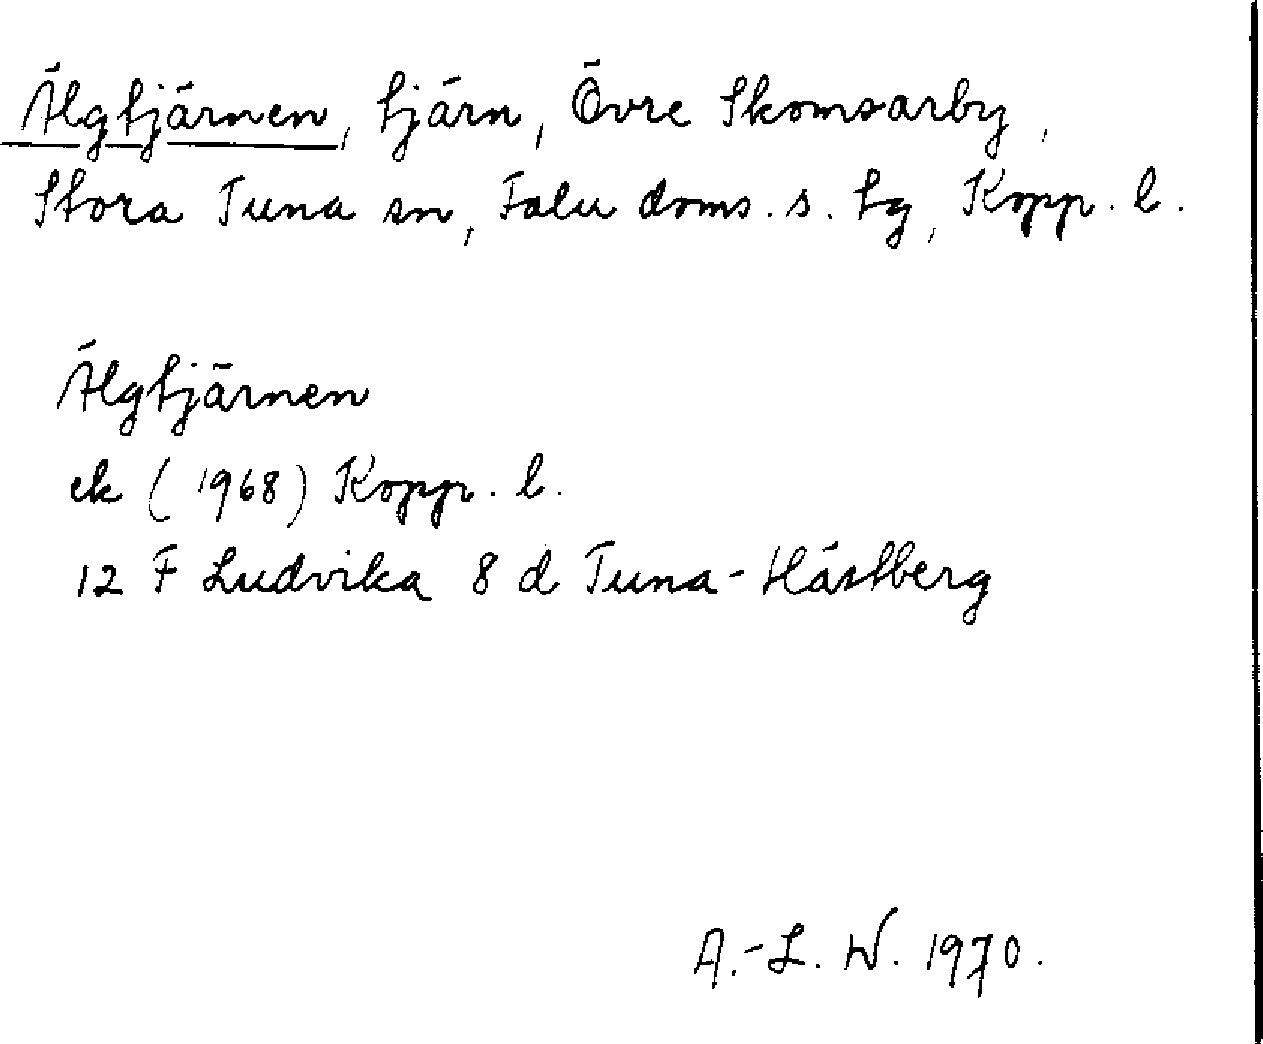 Älgtjärnen, tjärn, Övre Skomsarby,
Stora Tuna sn, Falu doms. s. tg, Kopp. l.
Älgtjärnen
ek (1968) Kopp. l.
12 F Ludvika 8 d Tuna-Hästberg
A.-L. W. 1970.